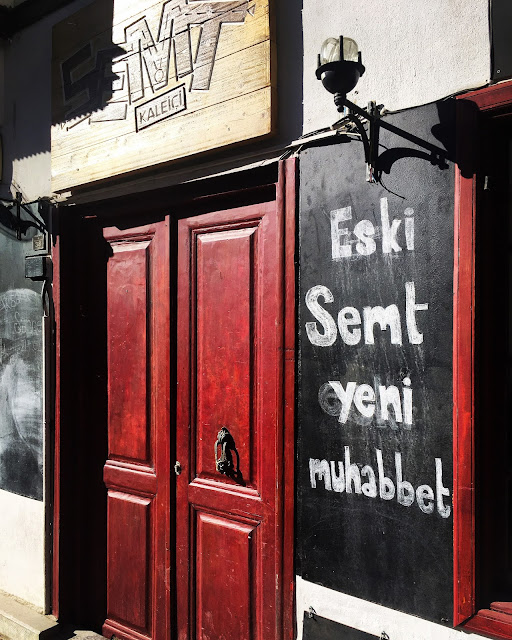 SEMT
KALEİÇİ
Eski
Semt
yeni
muhabbet